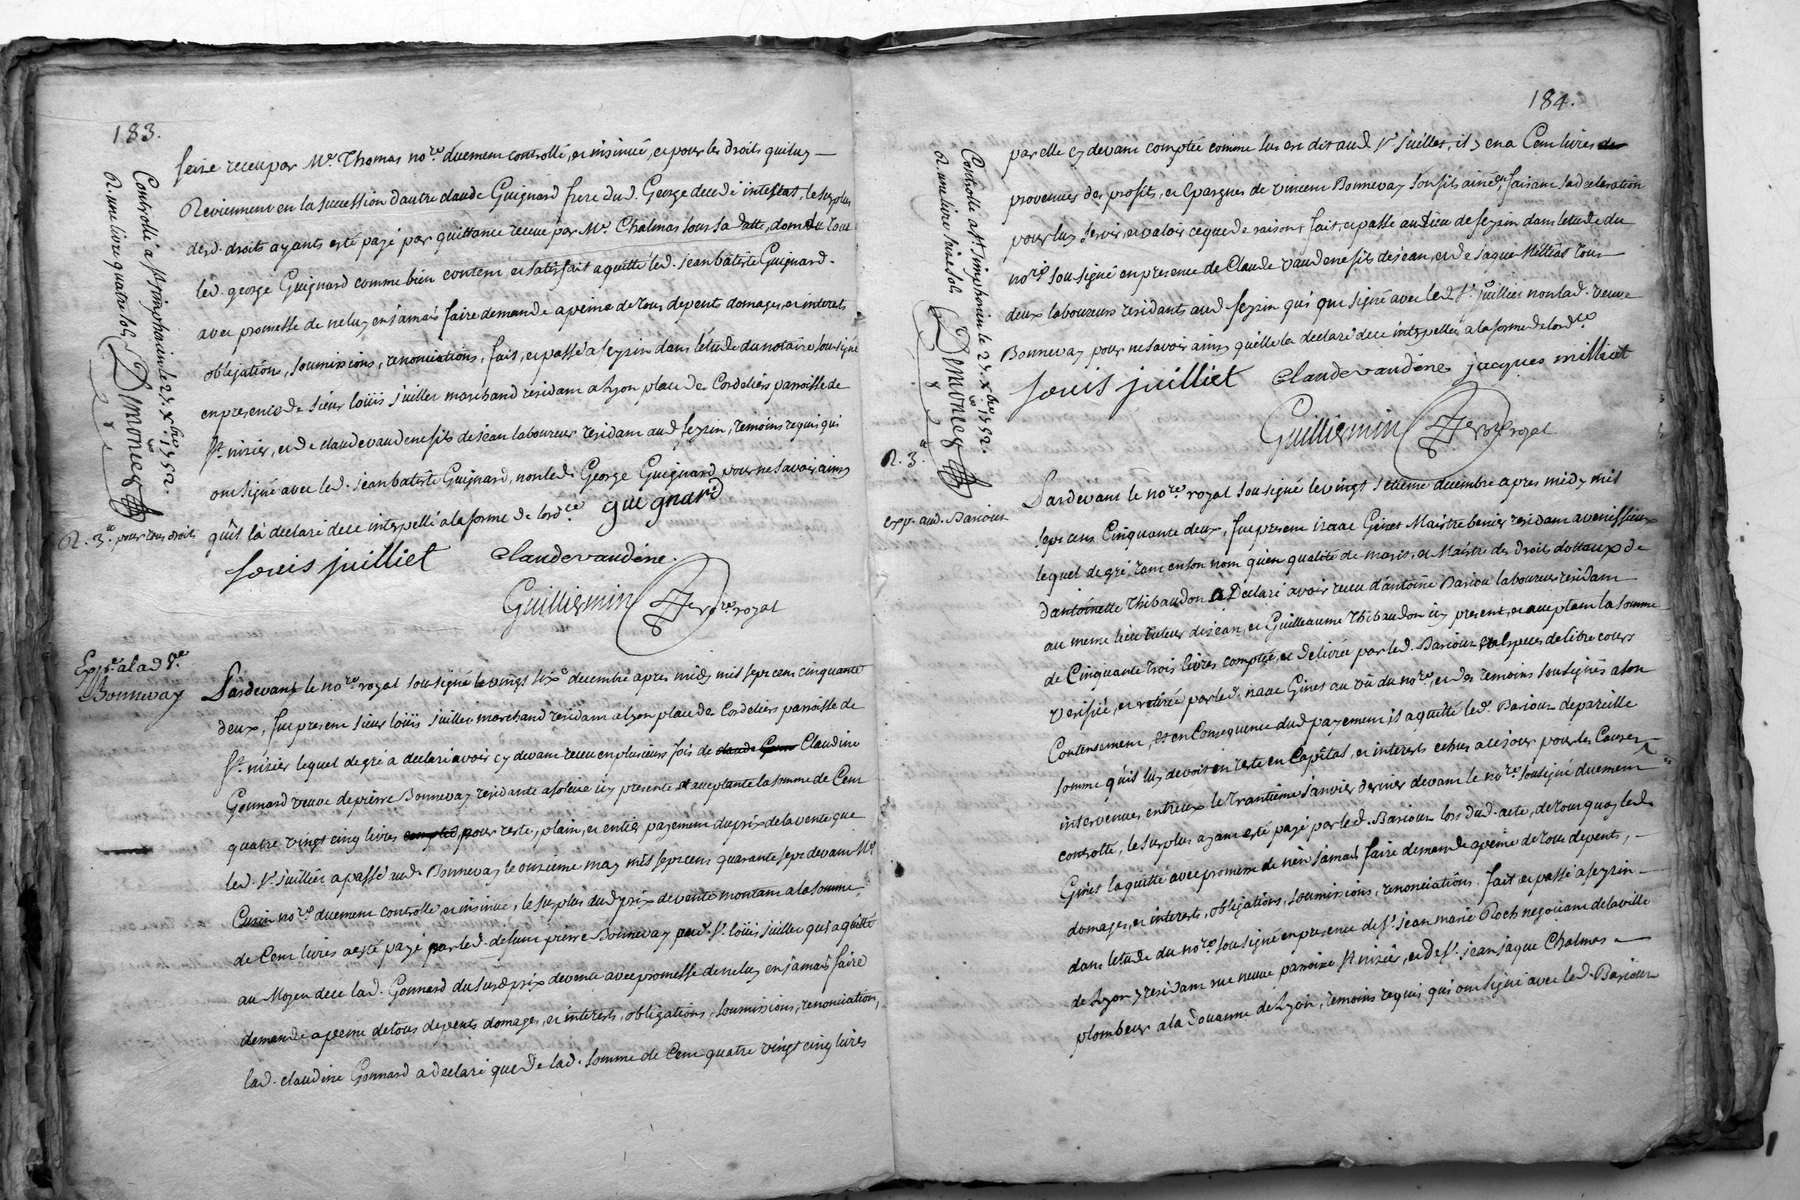 183.
seize receu par Me Thomas nore duement controllé, et insinué, et pour les droits qui luy
Reviennent en la succession d'autre claude Guignard frere dud. George decedé intestat, le surplus
desd. droits ayants esté payé par quittance receue par Me Chalmas sous sa datte, dont du tout
led. george Guignard comme bien content, et satisfait a quitté led. jean batiste Guignard.
avec promesse de ne luy en jamais faire demande a peine de tous depents domages, et interets
obligations, soumissions, renonciations, fait, et passé a feyzin dans l'etude du notaire soussigné
en presence de sieur loüis juillet marchand residant a lyon place des Cordeliers parroisse de
st. nizier, et de claude vaudene fils de jean laboureur residant aud. feyzin, temoins requis qui
ont signé avec led. jean batiste Guignard, non led. George Guignard pour ne savoir ainsy
qu'il l'a declaré de ce interpellé a la forme de l'ordce guegnard
louis juilliet claude vaudene.
Guilliermin nore royal
Controllé a st. simphorien le 27. xbre 1752.
R. une livre quatre sols Demoner
R. 3.tt pour tous droits
Expé. a lad. ve.
Bonnevay
Pardevant le nore royal soussigné le vingt sixe decembre apres midy mil sept cent cinquante
deux, fut present sieur loüis juillet marchand residant a lyon place des Cordeliers parroisse de
st. nizier lequel de gré a declaré avoir cy devant receu en plusieurs fois de claude Gonn Claudine
Gonnard veuve de pierre Bonnevay residante a solaise icy presente et acceptante la somme de Cent
quatre vingt cinq livres compted pour reste, plain, et entier payement du prix de la vente que
led. sr. juillier a passé aud. Bonnevay le onzieme may mil sept cens quarante sept devant Me
Cusin nore duement controllé et insinué, le surplus dud. prix de vente montant a la somme
de Cent livres a esté payé par led. defunt pierre Bonnevay aud. sr. loüis juillet qui a quitté
au Moyen de ce lad. Gonnard du susd. prix de vente avec promesse de ne luy en jamais faire
demande a peine de tous depents domages, et interests, obligations, soumissions, renonciation,
lad. claudine Gonnard a declaré que de lad. somme de Cent quatre vingt cinq livres
184.
par elle cy devant comptée comme luy est dit aud. sr juillet, il y en a Cent livres de
provenues des profit, et Epargnes de vincent Bonnevay son fils ainé, en faisant sa declaration
pour luy servir, et valoir ce que de raison, fait, et passé au lieu de feyzin dans l'etude du
nore soussigné en presence de Claude vaudene fils de jean, et de jaque Milliat tous
deux laboureurs residants aud. feyzin qui ont signé avec led. sr. juillier non lad. veuve
Bonnevay pour ne savoir ainsy qu'elle l'a declaré de ce interpellée a la forme de l'ordce
louis juilliet claude vaudene jacques milliat
Guilliermin nore royal
Controllé a st. simphorien le 27. xbre 1752.
R. une livre seize sols Demoner
R. 3.tt
expé. aud. Barioux
Pardevant le nore royal soussigné le vingt septieme decembre apres midy mil
sept cens Cinquante deux, fut present izaac Ginet Maistre benier residant a venissieux
lequel de gré, tant en son nom qu'en qualité de mari, et Maistre des droits dottaux de
d'antoinette Thibaudon a Declaré avoir receu d'antoine Bariou laboureur residant
au meme lieu tuteur de jean, et Guilleaume Thibaudon icy present, et acceptant la somme
de Cinquante trois livres comptée, et delivrée par led. Barioux en especes de libre cours
verifiée, et retirée par led. izaac Ginet au vü du nore, et des temoins soussignés a son
Contentement, et en Consequence dud. payement il a quitté led. Barioux de pareille
somme qu'il luy devoit en reste en Capital, et interets echus a ce jour pour les Causes
intervenues entr'eux le trantieme janvier dernier devant le nore soussigné duement
controllé, le surplus ayant esté payé par led. Barioux lors dud. acte, de tout quoy led.
Ginet l'a quitté avec promesse de n'en jamais faire demande a peine de tous depents,
domages, et interests, obligations, soumissions, renonciations. fait, et passé a feyzin
dans l'etude du nore soussigné en presence de sr. jean marie Roch negotiant de la ville
de Lyon y residant rue neuve parroisse st. nizier, et de sr. jean jaque Chalmas
plombeur a la Douanne de Lyon, temoins requis qui ont signé avec led. Barioux